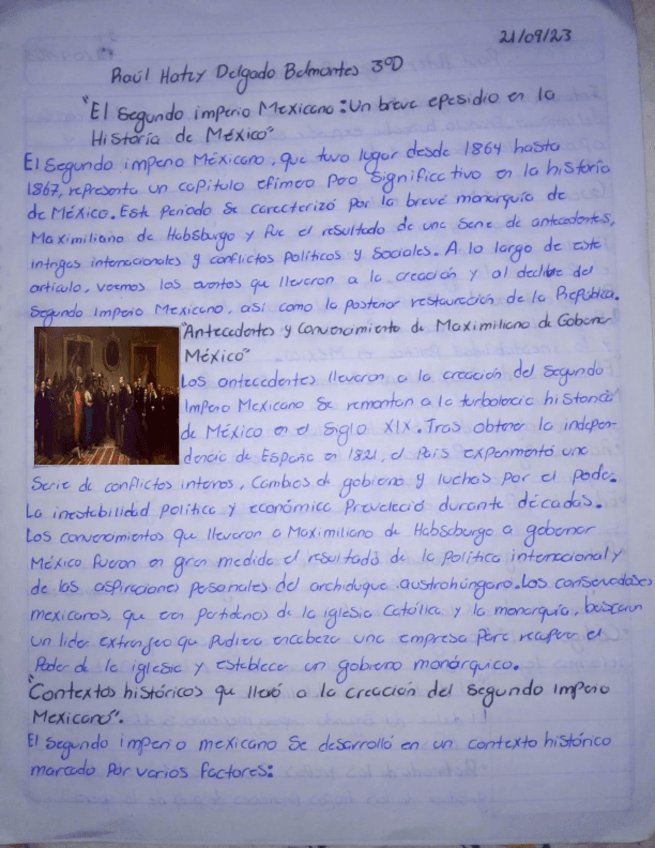 21/09/23
Raúl Hatzy Delgado Belmontes 3ºD
"El Segundo imperio Mexicano: Un breve epesidio en la
Historia de México"
El Segundo imperio Méxicano, que tuvo lugar desde 1864 hasta
1867, representa un capitulo efimero pero significativo en la historia
de México. Este periodo se caracterizó por la breve monarquía de
Maximiliano de Habsburgo y fue el resultado de una serie de antecedentes,
intrigas internacionales y conflictos políticos y sociales. A lo largo de este
artículo, veremos los eventos que llevaron a la creación y al declibe del
Segundo Imperio Mexicano, así como la posterior restauración de la República.
"Antecedentes y Convencimiento de Maximiliano de Gobernar
México"
Los antecedentes llevaron a la creación del Segundo
Imperio Mexicano se remontan a la turbolecia historia
de México en el siglo XIX. Tras obtener la indepen-
dencia de España en 1821, el país experimentó una
Serie de conflictos internos, cambios de gobierno y luchas por el poder.
La inestabilidad política y económica prevaleció durante décadas.
Los convencimientos que llevaron a Maximiliano de Habsburgo a gobernar
México fueron en gran medida el resultado de la política internacional y
de las aspiraciones personales del archiduque austrohúngaro. Los conservadores
mexicanos, que eran partidarios de la iglesia Católica y la monarquía, buscaron
un lider extranjero que pudiera encabezar una empresa para recuperar el
Poder de la iglesia y establecer un gobierno monárquico.
"Contextos históricos que llevó a la creación del segundo Imperio
Mexicano".
El segundo imperio mexicano se desarrolló en un contexto histórico
marcado por varios factores: